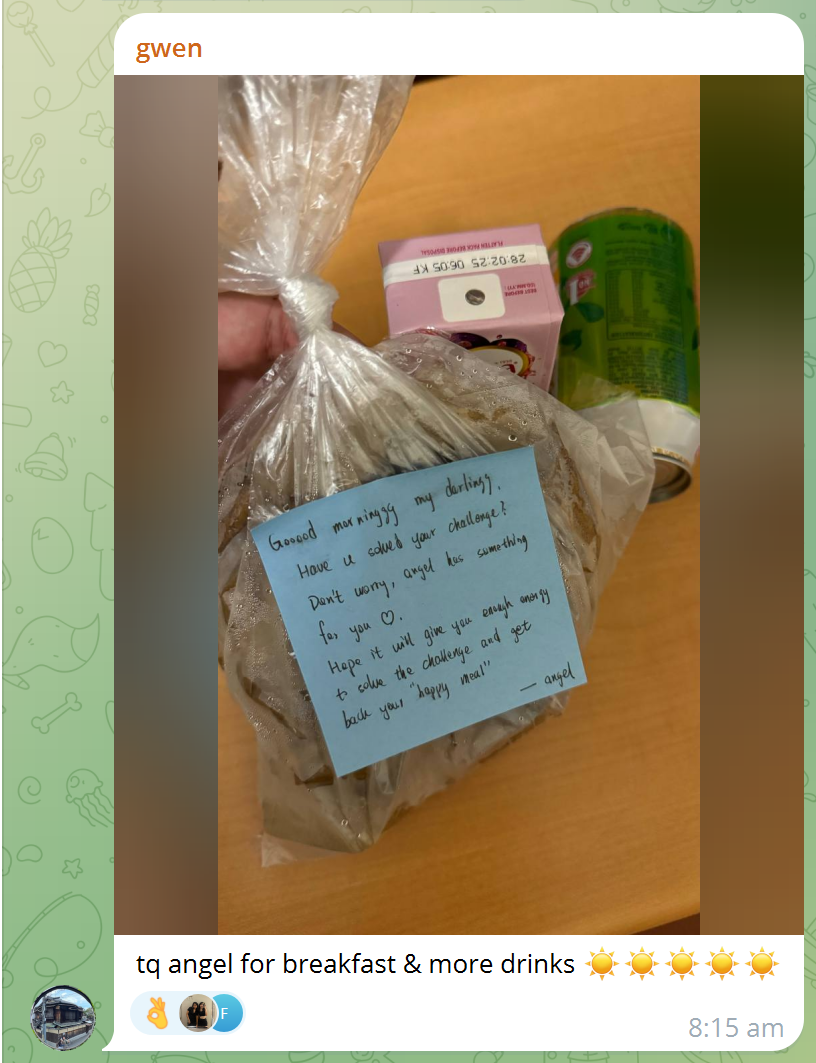 gwen
FLATTEN PACK BEFORE DISPOSAL
28:02:25 06:05 KF
BEST BEFORE
Gooood morninggg my darlingg,
Have u solved your challenge?
Don't worry, angel has something
for you ♡.
Hope it will give you enough energy
to solve the challenge and get
back your "happy meal"
— angel
tq angel for breakfast & more drinks ☀️☀️☀️☀️☀️
👌 F
8:15 am